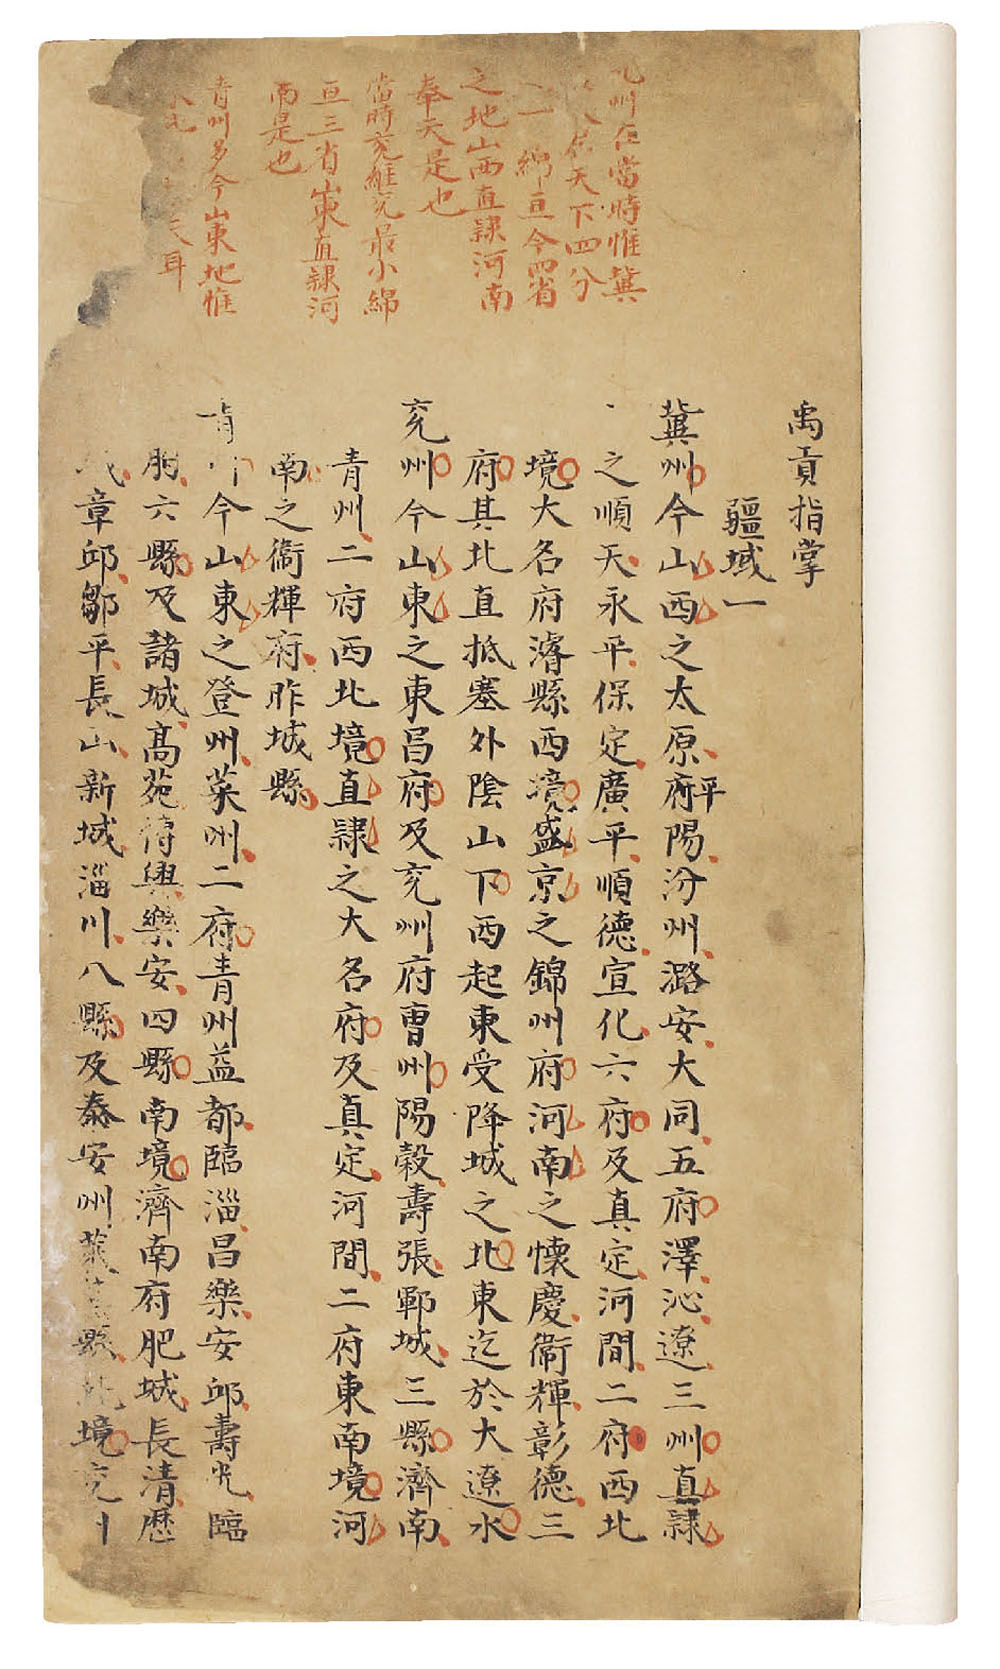 九州在當時惟冀
供天下四分
一綿亘今四省
之地山西直隸河南
奉天是也
當時兗雖兗最小綿
亘三省山東直隸河
南是也
青州多今山東地惟
天耳
禹貢指掌
疆域一
冀州今山西之太原府平陽汾州潞安大同五府澤沁遼三州真隸
之順天永平保定廣平順德宣化六府及真定河間二府西北
境大名府濬縣西境盛京之錦州府河南之懷慶衞輝彰德三
府其北直抵塞外陰山下西起東受降城之北東迄於大遼水
兗州今山東之東昌府及兗州府曹州陽穀壽張鄆城三縣濟南
青州二府西北境直隸之大名府及真定河間二府東南境河
南之衞輝府昨城縣
青州今山東之登州萊州二府青州益都臨淄昌樂安邱壽光臨
朐六縣及諸城高苑博興樂安四縣南境濟南府肥城長清歷
城章邱鄒平長山新城淄川八縣及泰安州萊蕪縣北境兗州